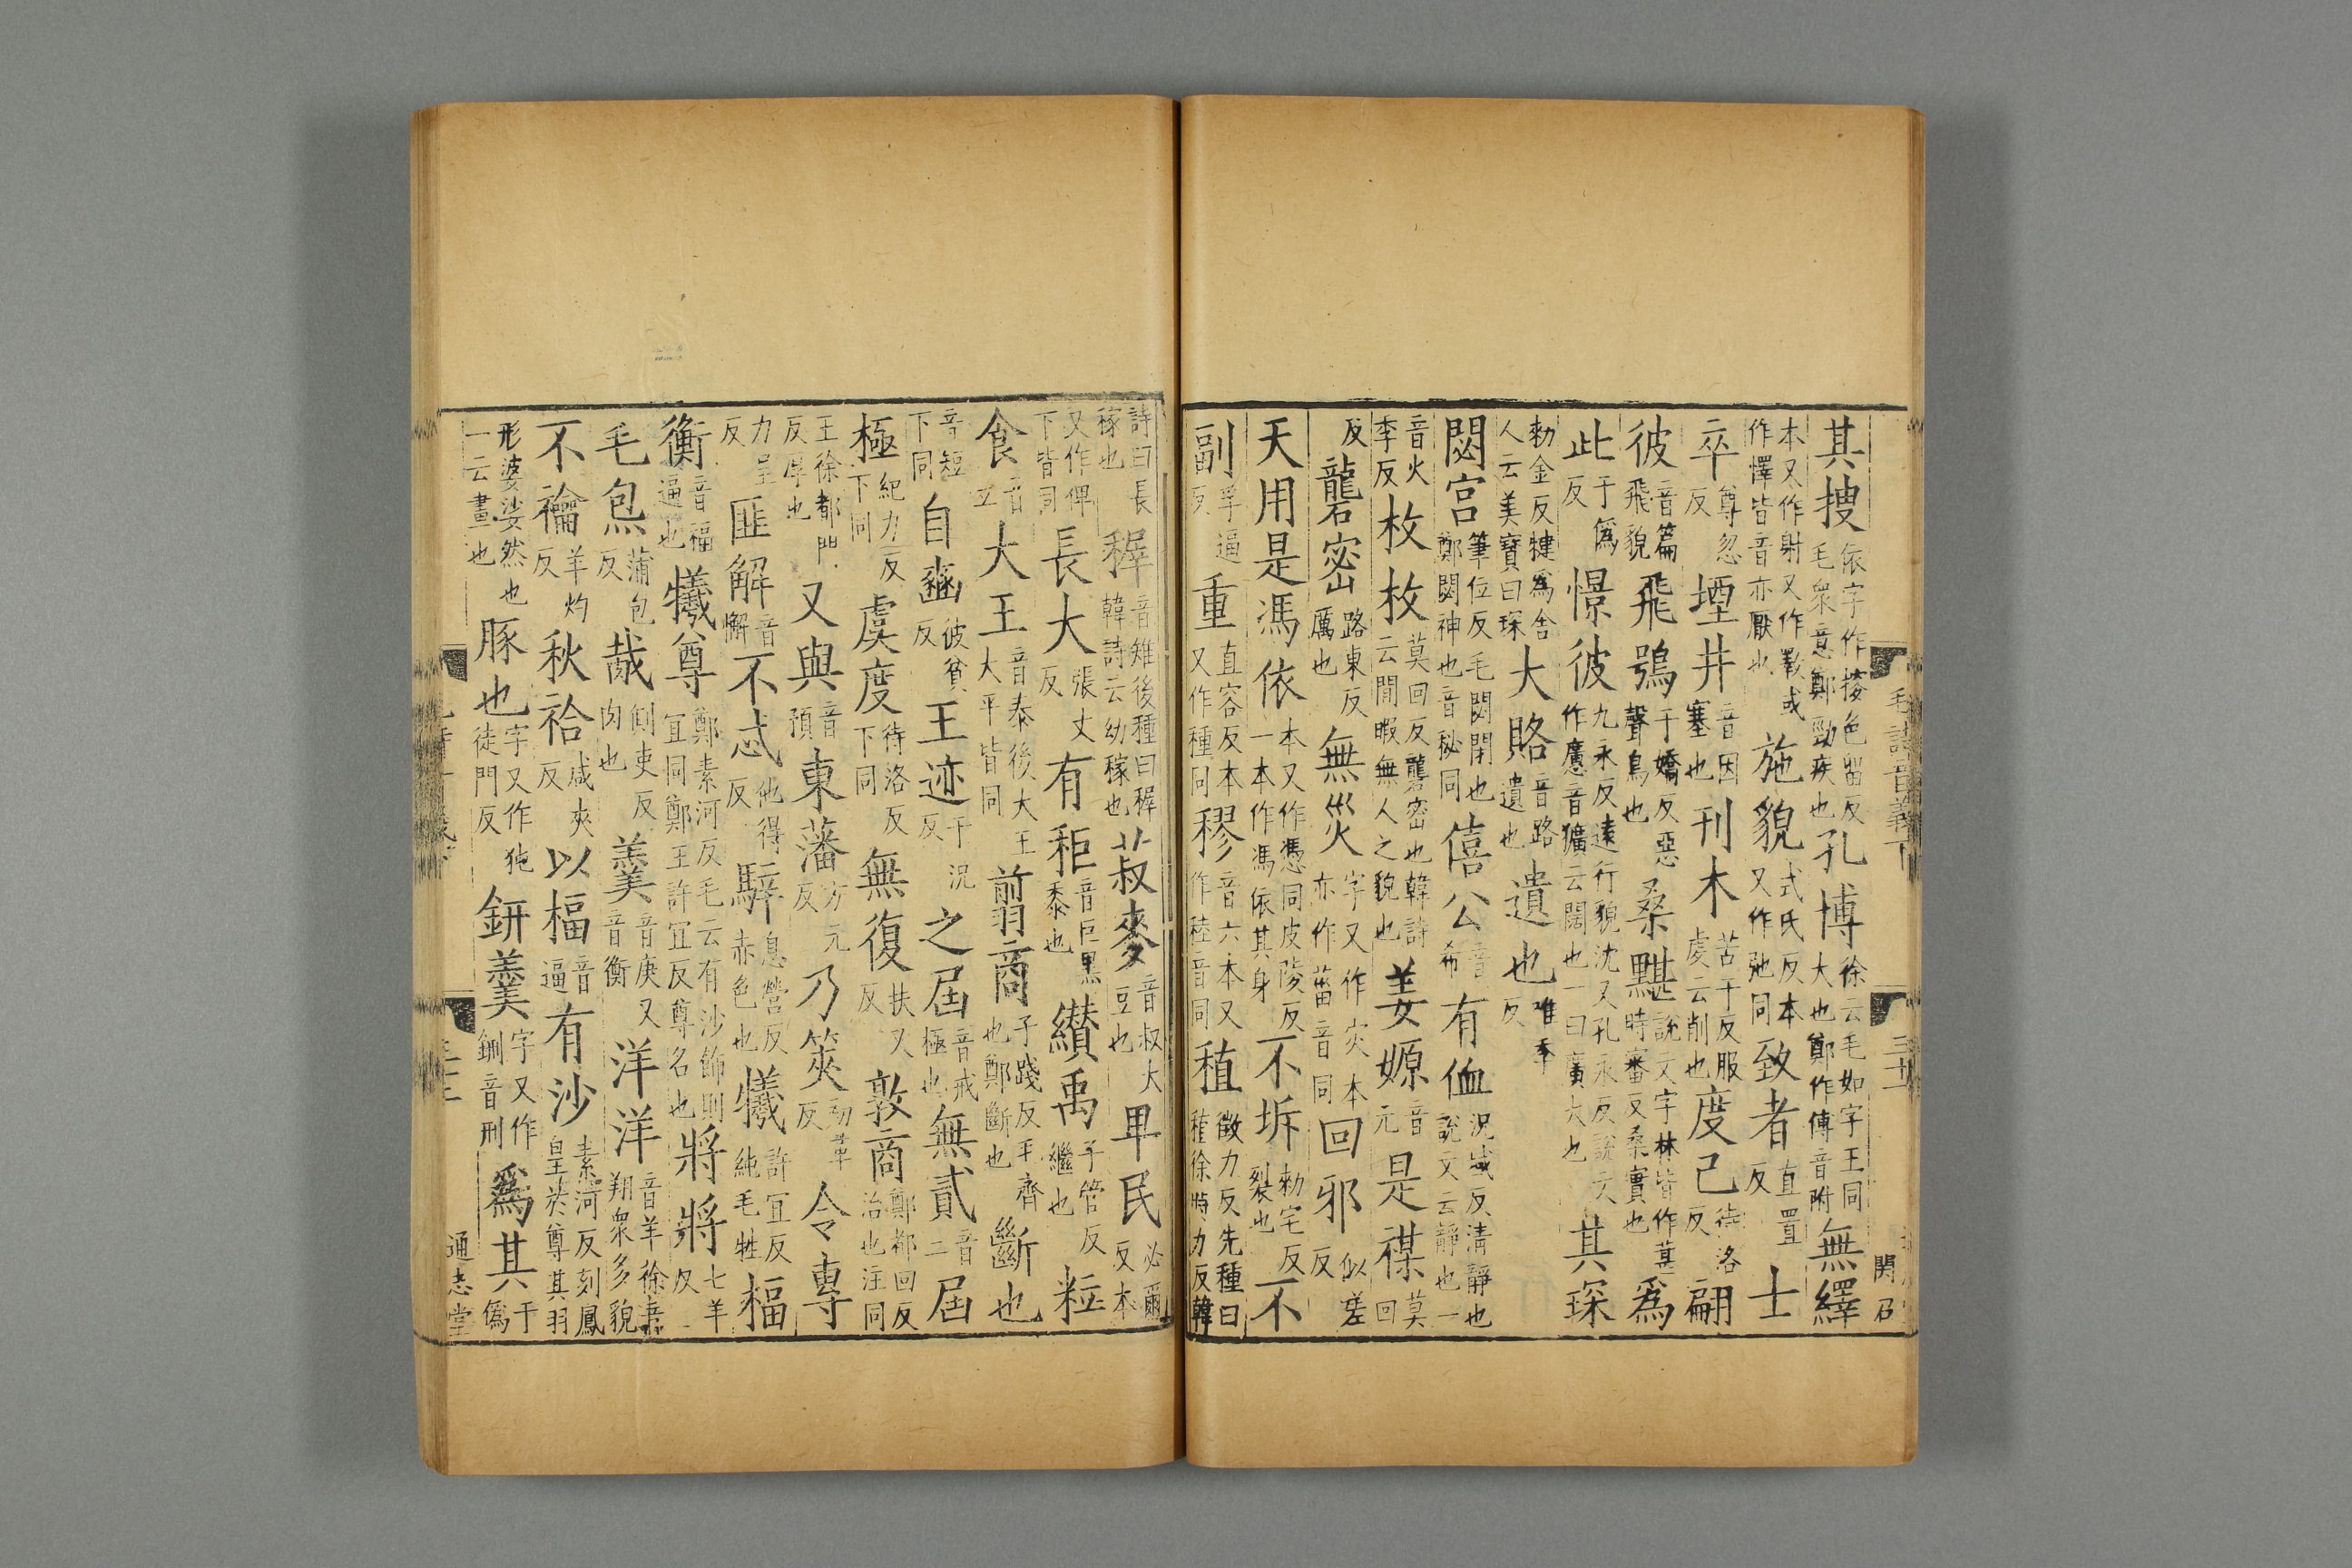 其搜依字作㨞色留反毛衆意鄭勁疾也孔博徐云毛如字王同大也鄭作傅音附無繹
本又作射又作斁或作懌皆音亦厭也施貌式氏反本又作弛同致者直置反士
卒尊忽反堙井音因塞也刊木苦干反服虔云削也度己待洛反翩
彼音篇飛貌飛鴞于嬌反惡聲鳥也桑黮說文字林皆作葚時審反桑實也爲
此于僞反憬彼九永反遠行貌沈又孔永反說文作懬音獷云闊也一曰廣大也其琛
勑金反犍爲舍人云美寶曰琛大賂音路遺也遺也唯季反
閟宮筆位反毛閟閉也鄭閟神也音秘同僖公音希有侐況域反清靜也說文云靜也一
音火季反枚枚莫回反礱密也韓詩云閒暇無人之貌也姜嫄音元是禖莫回
反礱密路東反厲也無災字又作灾本亦作菑音同回邪似嗟反
天用是馮依本又作憑同皮陵反一本作馮依其身不坼勑宅反裂也不
副孚逼反重直容反本又作種同穋音六本又作稑音同稙徵力反先種曰稙徐時力反韓
詩曰長稼也稺音雉後種曰稺韓詩云幼稼也菽麥音叔大豆也卑民必爾反本
又作俾下皆同長大張丈反有秬音巨黑黍也纉禹子管反繼也粒
食音立大王音泰後大王大平皆同翦商子踐反毛齊也鄭斷也斷也
音短下同自豳彼貧反王迹于況反之屆音戒極也無貳音二屆
極紀力反下同虞度待洛反下同無復扶又反敦商鄭都回反治也注同
王徐都門反厚也又與音預東藩方元反乃筴初革反令專
力呈反匪解音懈不忒他得反騂息營反赤色也犧許宜反純毛牲福
衡音福逼也犧尊鄭素河反毛云有沙飾則宜同鄭王許宜反尊名也將將七羊反
毛炰蒲包反胾側吏反肉也羹音庚又音衡洋洋音羊徐音翔衆多貌
不禴羊灼反秋祫咸夾反以楅音逼有沙素河反刻鳳皇於尊其羽
形婆娑然也一云畫也豚也字又作㹠徒門反鈃羹字又作鉶音刑爲其于僞
毛詩音義下
三十五
通志堂